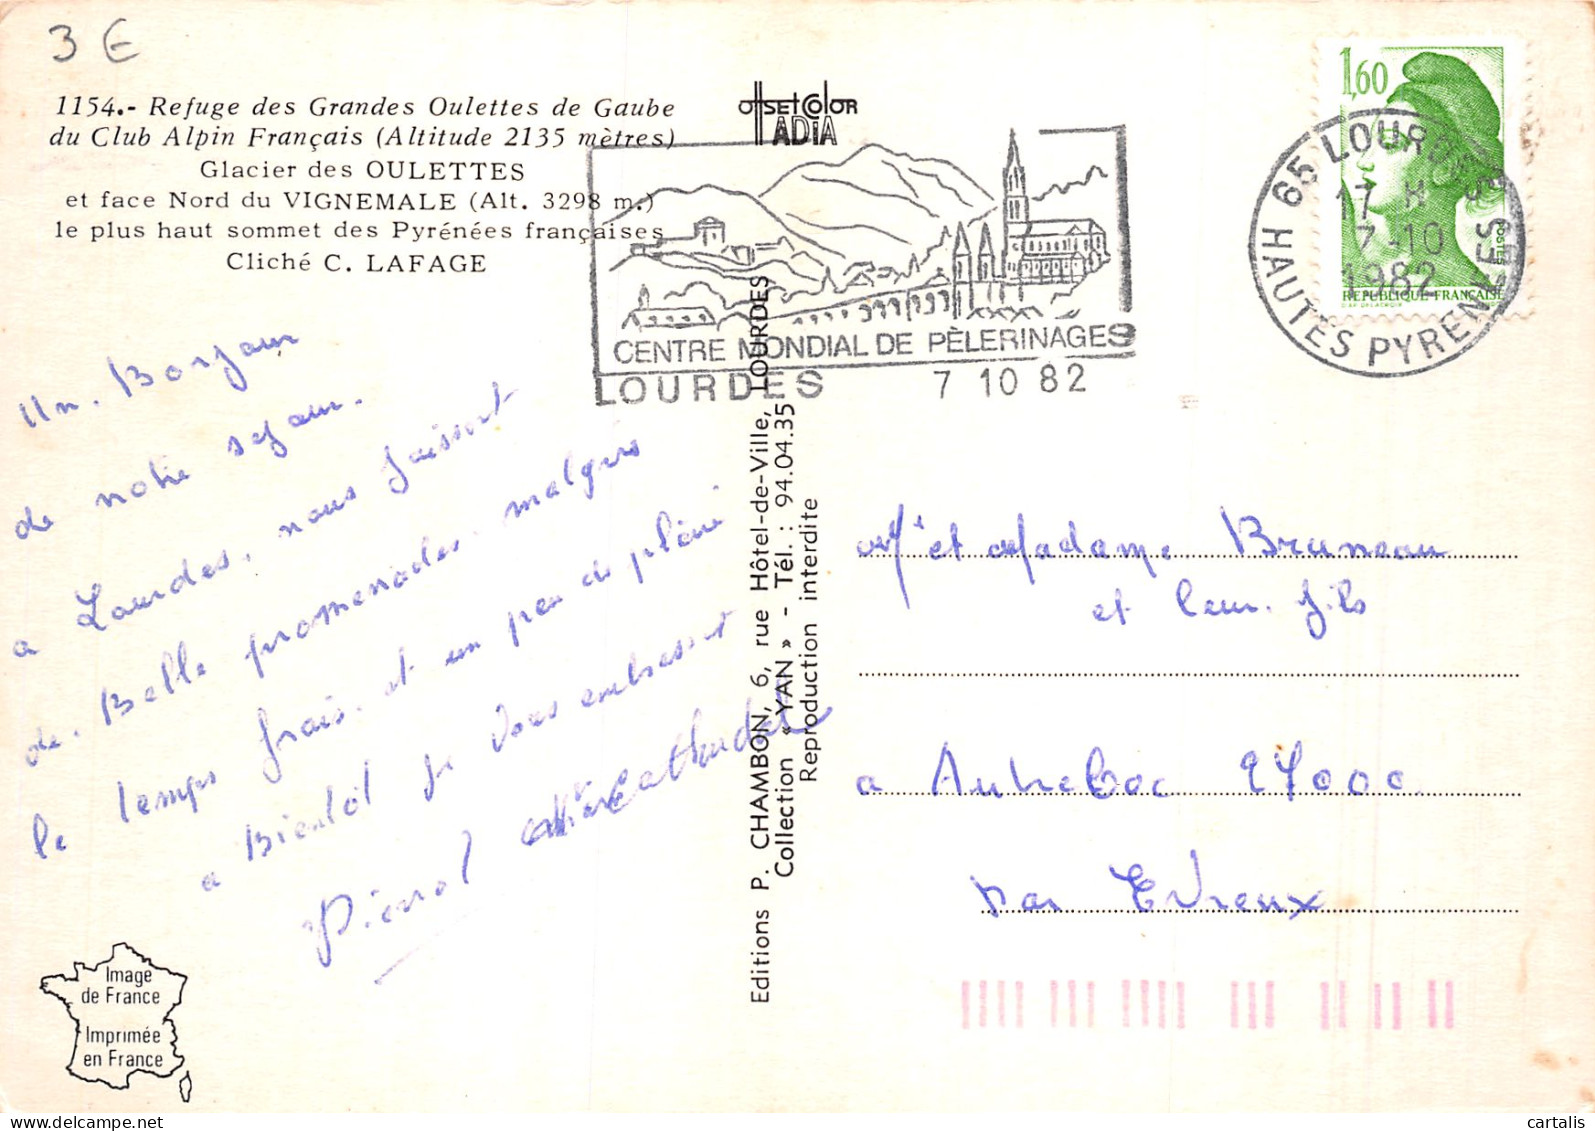 3 €
1154.- Refuge des Grandes Oulettes de Gaube
du Club Alpin Français (Altitude 2135 mètres)
Glacier des OULETTES
et face Nord du VIGNEMALE (Alt. 3298 m.)
le plus haut sommet des Pyrénées françaises
Cliché C. LAFAGE
OffsetColor
ADIA
CENTRE MONDIAL DE PÈLERINAGES
LOURDES 7 10 82
1,60
POSTES
REPUBLIQUE FRANÇAISE
65 LOURDES
17 H
7-10
1982
HAUTES PYRENEES
Un. Bonjour
de notre sejour.
a Lourdes, nous faisont
de. Belle promenades. malgres
le temps frais. et un peu de pluie
a Bientot je vous embrassent
Pierrot
Editions P. CHAMBON, 6, rue Hôtel-de-Ville, LOURDES
Collection « YAN » - Tél. : 94.04.35
Reproduction interdite
Mr et Madame Bruneau
et leur. fils
a 27000.
par Evreux
Image
de France
Imprimée
en France
cartalis